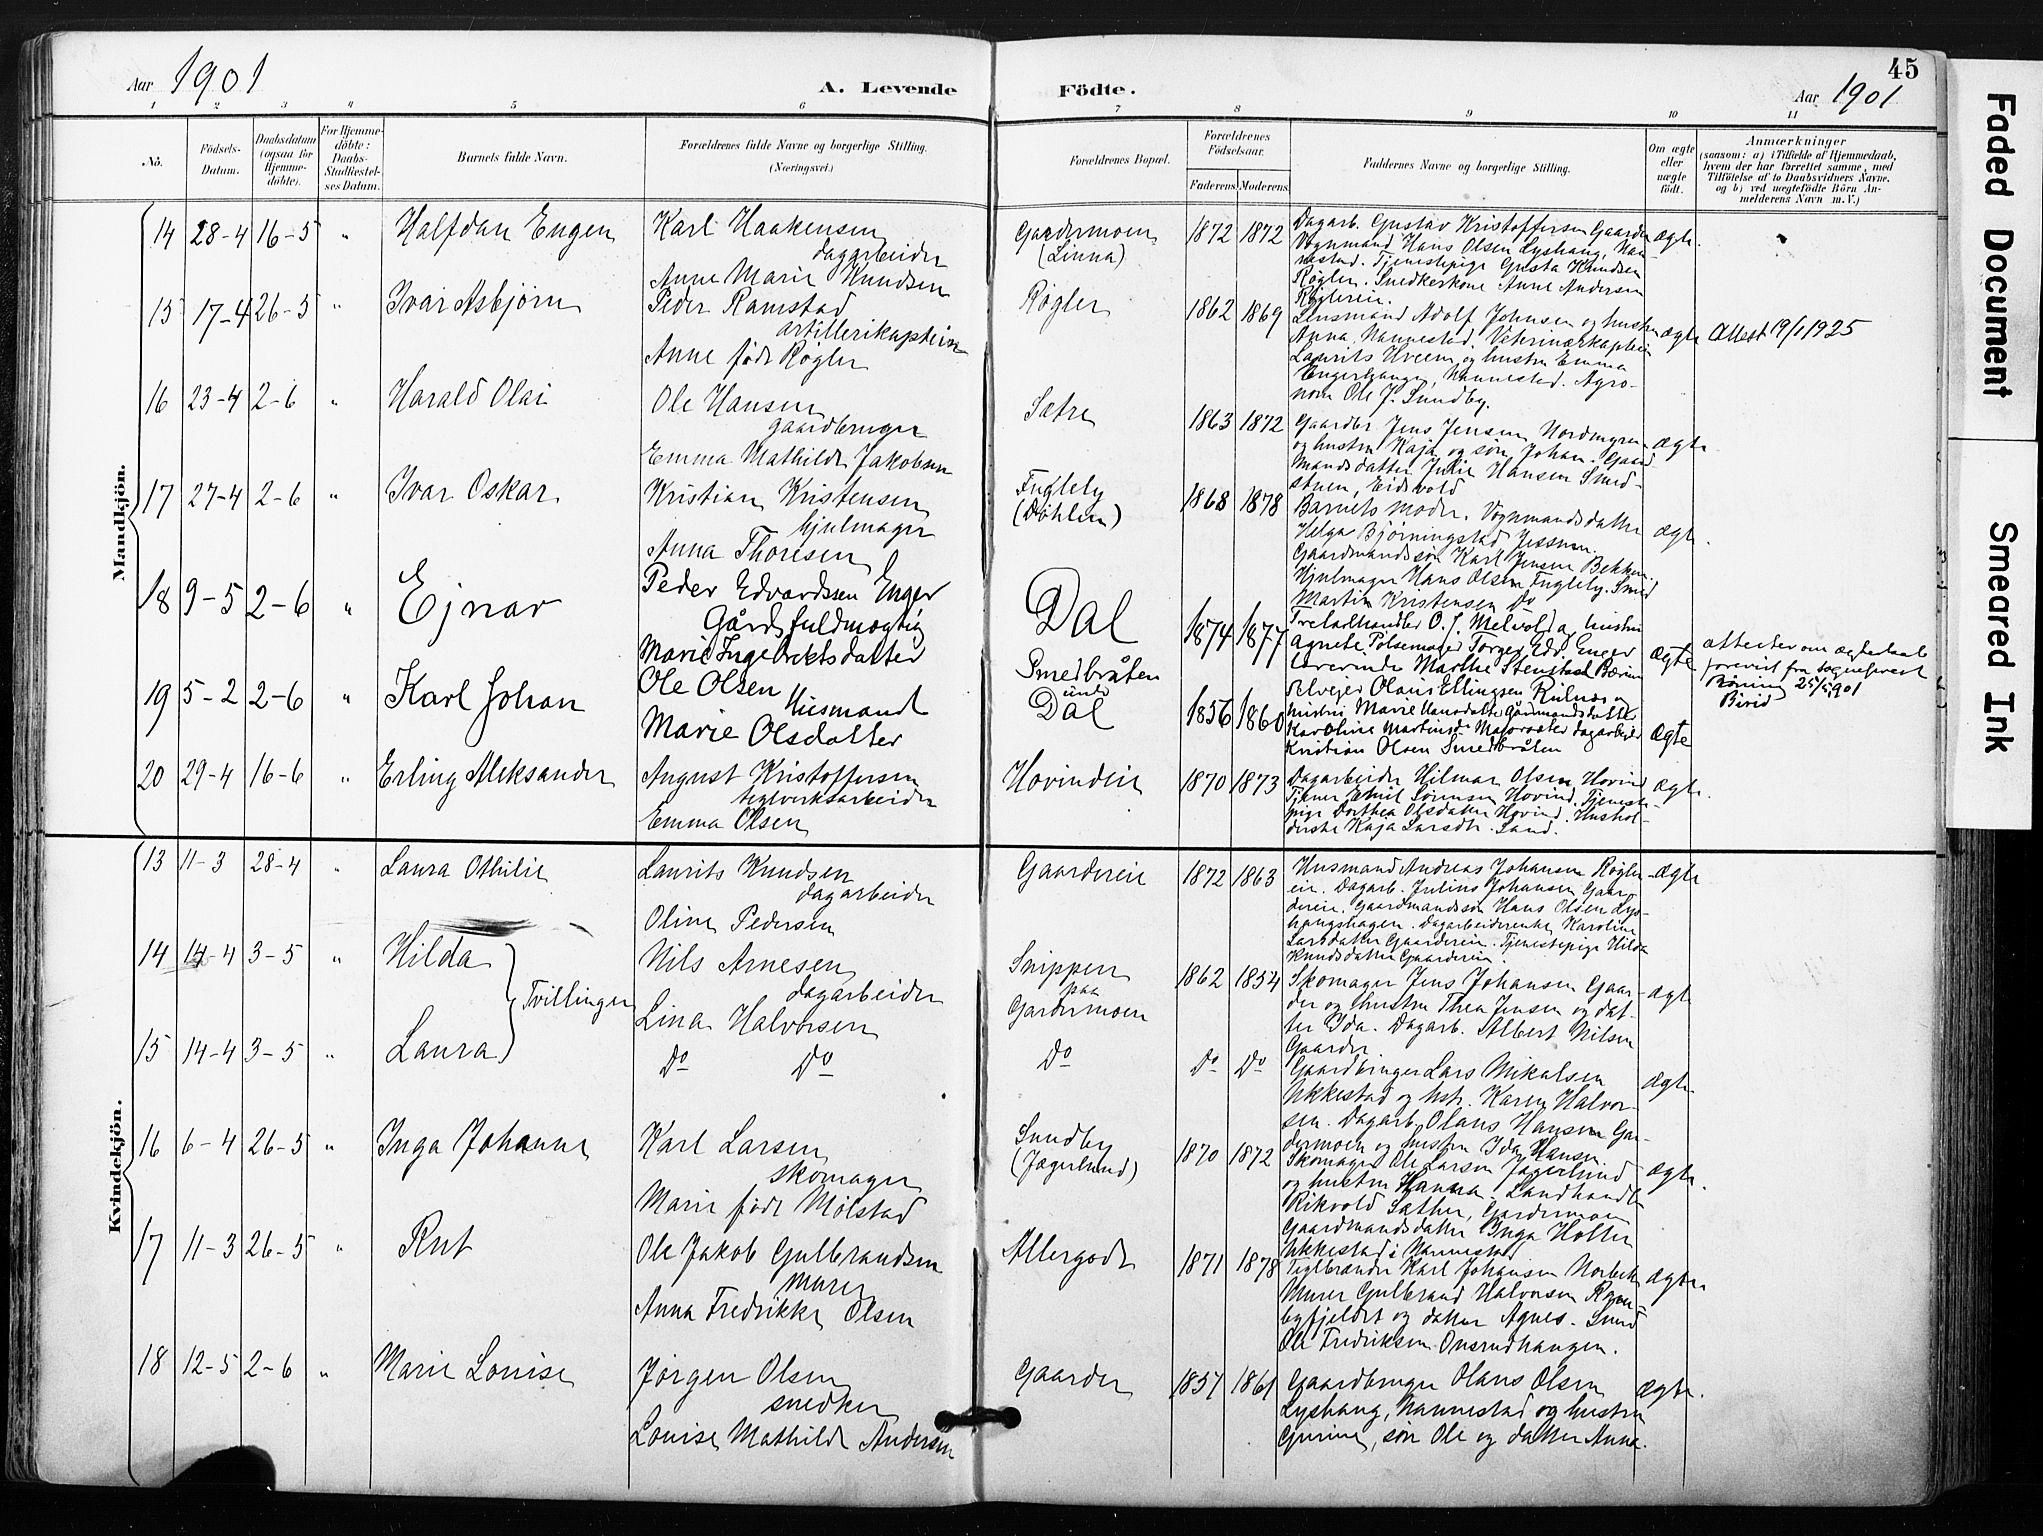 45
Aar 1901
A. Levende Fødte.
Aar 1901
1 2 3 4 5 6 7 8 9 10 11
No.
Fødsels-Datum.
Daabsdatum (ogsaa for Hjemme-døbte).
For Hjemme-døbte: Daabs-Stadfæstel-ses Datum.
Barnets fulde Navn.
Forældrenes fulde Navne og borgerlige Stilling.
(Næringsvei.)
Forældrenes Bopæl.
Forældrenes Fødselsaar.
Faderens. Moderens.
Faddernes Navne og borgerlige Stilling.
Om ægte eller uægte født.
Anmærkninger
(saasom: a) i Tilfælde af Hjemmedaab,
hvem der har forrettet samme, med
Tilføielse af to Daabsvidners Navne.
og b) ved uægtefødte Børn An-
melderens Navn m.V.)
Mandkjøn.
14 28-4 16-5 " Halfdan Engen
Karl Haakensen
dagarbeider
Anne Marie Knudsen
Gardermoen
(Linna)
1872 1872
Dagarb. Gustav Kristoffersen Gaarder
Vognmand Hans Olsen Lyshaug, Nan-
nestad. Tjenestepige Gusta Knudsen
Røgler. Snedkerkone Anne Andersen
Røglereie.
ægte
15 17-4 26-5 " Ivar Asbjørn
Peder Ramstad
artillerikaptein
Anne født Røgler
Røgler
1862 1869
Lensmand Adolf Johnsen og hustru
Anna, Nannestad. Veterinærkaptein
Laurits Hveem og hustru Emma
Engerhaugen, Nannestad. Agro-
nom Ole J. Sundby.
ægte
Attest 19/1 1925
16 23-4 2-6 " Harald Olai
Ole Hansen
gaardbruger
Emma Mathilde Jakobsen
Sætre
1863 1872
Gaardbr. Jens Jensen Nordmyren
og hustru Kaja og søn Johan. Gaard
mandsdatter Julie Hansen Smed-
stuen, Eidsvold
ægte
17 27-4 2-6 " Ivar Oskar
Kristian Kristensen
hjulmager
Anna Thoresen
Fugleby
(Døhlen)
1868 1878
Barnets moder. Vognmandsdatter
Helga Bjørningstad Jessnæs.
Gaardmandssøn Karl Jensen Bekken
Hjulmager Hans Olsen Fugleby. Smed
Martin Kristensen Do
ægte
18 9-5 2-6 " Ejnar
Peder Edvardssen Enger
Gårdsfuldmægtig
Marie Ingebrektsdatter
Dal
1874 1877
Trelasthandler O. J. Melvold og hustru
Agnete Pølsemager Torger Edv. Enger
Lærerinde Marthe Stenstad Bærum
ægte
attester om ægteskab
forevist fra sogneprest
25/5 1901
Birid
19 5-2 2-6 " Karl Johan
Ole Olsen
Husmand
Marie Olsdatter
Smedbråten
under
Dal
1856 1860
Selvejer Olaus Ellingsen Rislnæs og
hustru Marie Hansdatter Gårdmandsdatter
Karoline Martinsd. dagarbejder
Kristian Olsen Smedbråten
ægte
20 29-4 16-6 " Erling Aleksander
August Kristoffersen
teglverksarbeider
Emma Olsen
Hovindeie
1870 1873
Dagarbeider Hilmar Olsen Hovind
Tjener Emil Sørensen Hovind. Tjeneste-
pige Dorthea Olsdatter Hovind. Hushol-
derske Kaja Larsdtr. Sand.
ægte
Kvindekjön.
13 11-3 28-4 " Laura Othilie
Laurits Knudsen
dagarbeider
Oline Pedersen
Gaardereie
1872 1863
Husmand Andreas Johansen Røgler-
eie. Dagarb. Julius Johansen Gaar-
dereie. Gaardmandssøn Hans Olsen Lys-
haugshagen. Dagarbeiderenke Karoline
Larsdatter Gaardereie. Tjenestepige Hilda
Knudsdatter Gaardereie.
ægte
14 14-4 3-5 " Hilda
Tvillinger
Nils Arnesen
dagarbeider
Lina Halvorsen
Snippen
paa
Gardermoen
1862 1854
Skomager Jens Johansen Gaar-
der og hustru Thea Jensen og dat-
ter Ida. Dagarb. Albert Nilsen
Gaarder
ægte
15 14-4 3-5 " Laura
Do Do
Do
Do Do
Gaardbruger Lars Mikalsen
Ukkestad og hstr. Karen Halvor-
sen. Dagarb. Olaus Hansen Gar-
dermoen og hustru Ida Hansen
ægte
16 6-4 26-5 " Inga Johanne
Karl Larsen
skomager
Marie født Mølstad
Sundby
(Jægerlund)
1870 1872
Skomager Ole Larsen Jægerlund
og hustru Hanna. Landhandler
Rikvold Sæther, Gardermoen
Gaardmandsdatter Inga Holter
Ukkestad i Nannestad
ægte.
17 11-3 26-5 " Rut
Ole Jakob Gulbrandsen
murer
Anna Fredrikke Olsen
Allergodt
1871 1878
Teglbrænder Karl Johansen Norbek
Murer Gulbrand Halvorsen Røgn-
byfjeldet og datter Agnes. Smed
Ole Fredriksen Onsrudhaugen.
ægte
18 12-5 2-6 " Marie Louise
Jørgen Olsen
snedker
Louise Mathilde Andersen
Gaarder
1857 1861
Gaardbruger Olaus Olsen
Lyshaug, Nannestad og hustru
Gurine, søn Ole og datter Anna.
ægte.
Faded Document
Smeared Ink